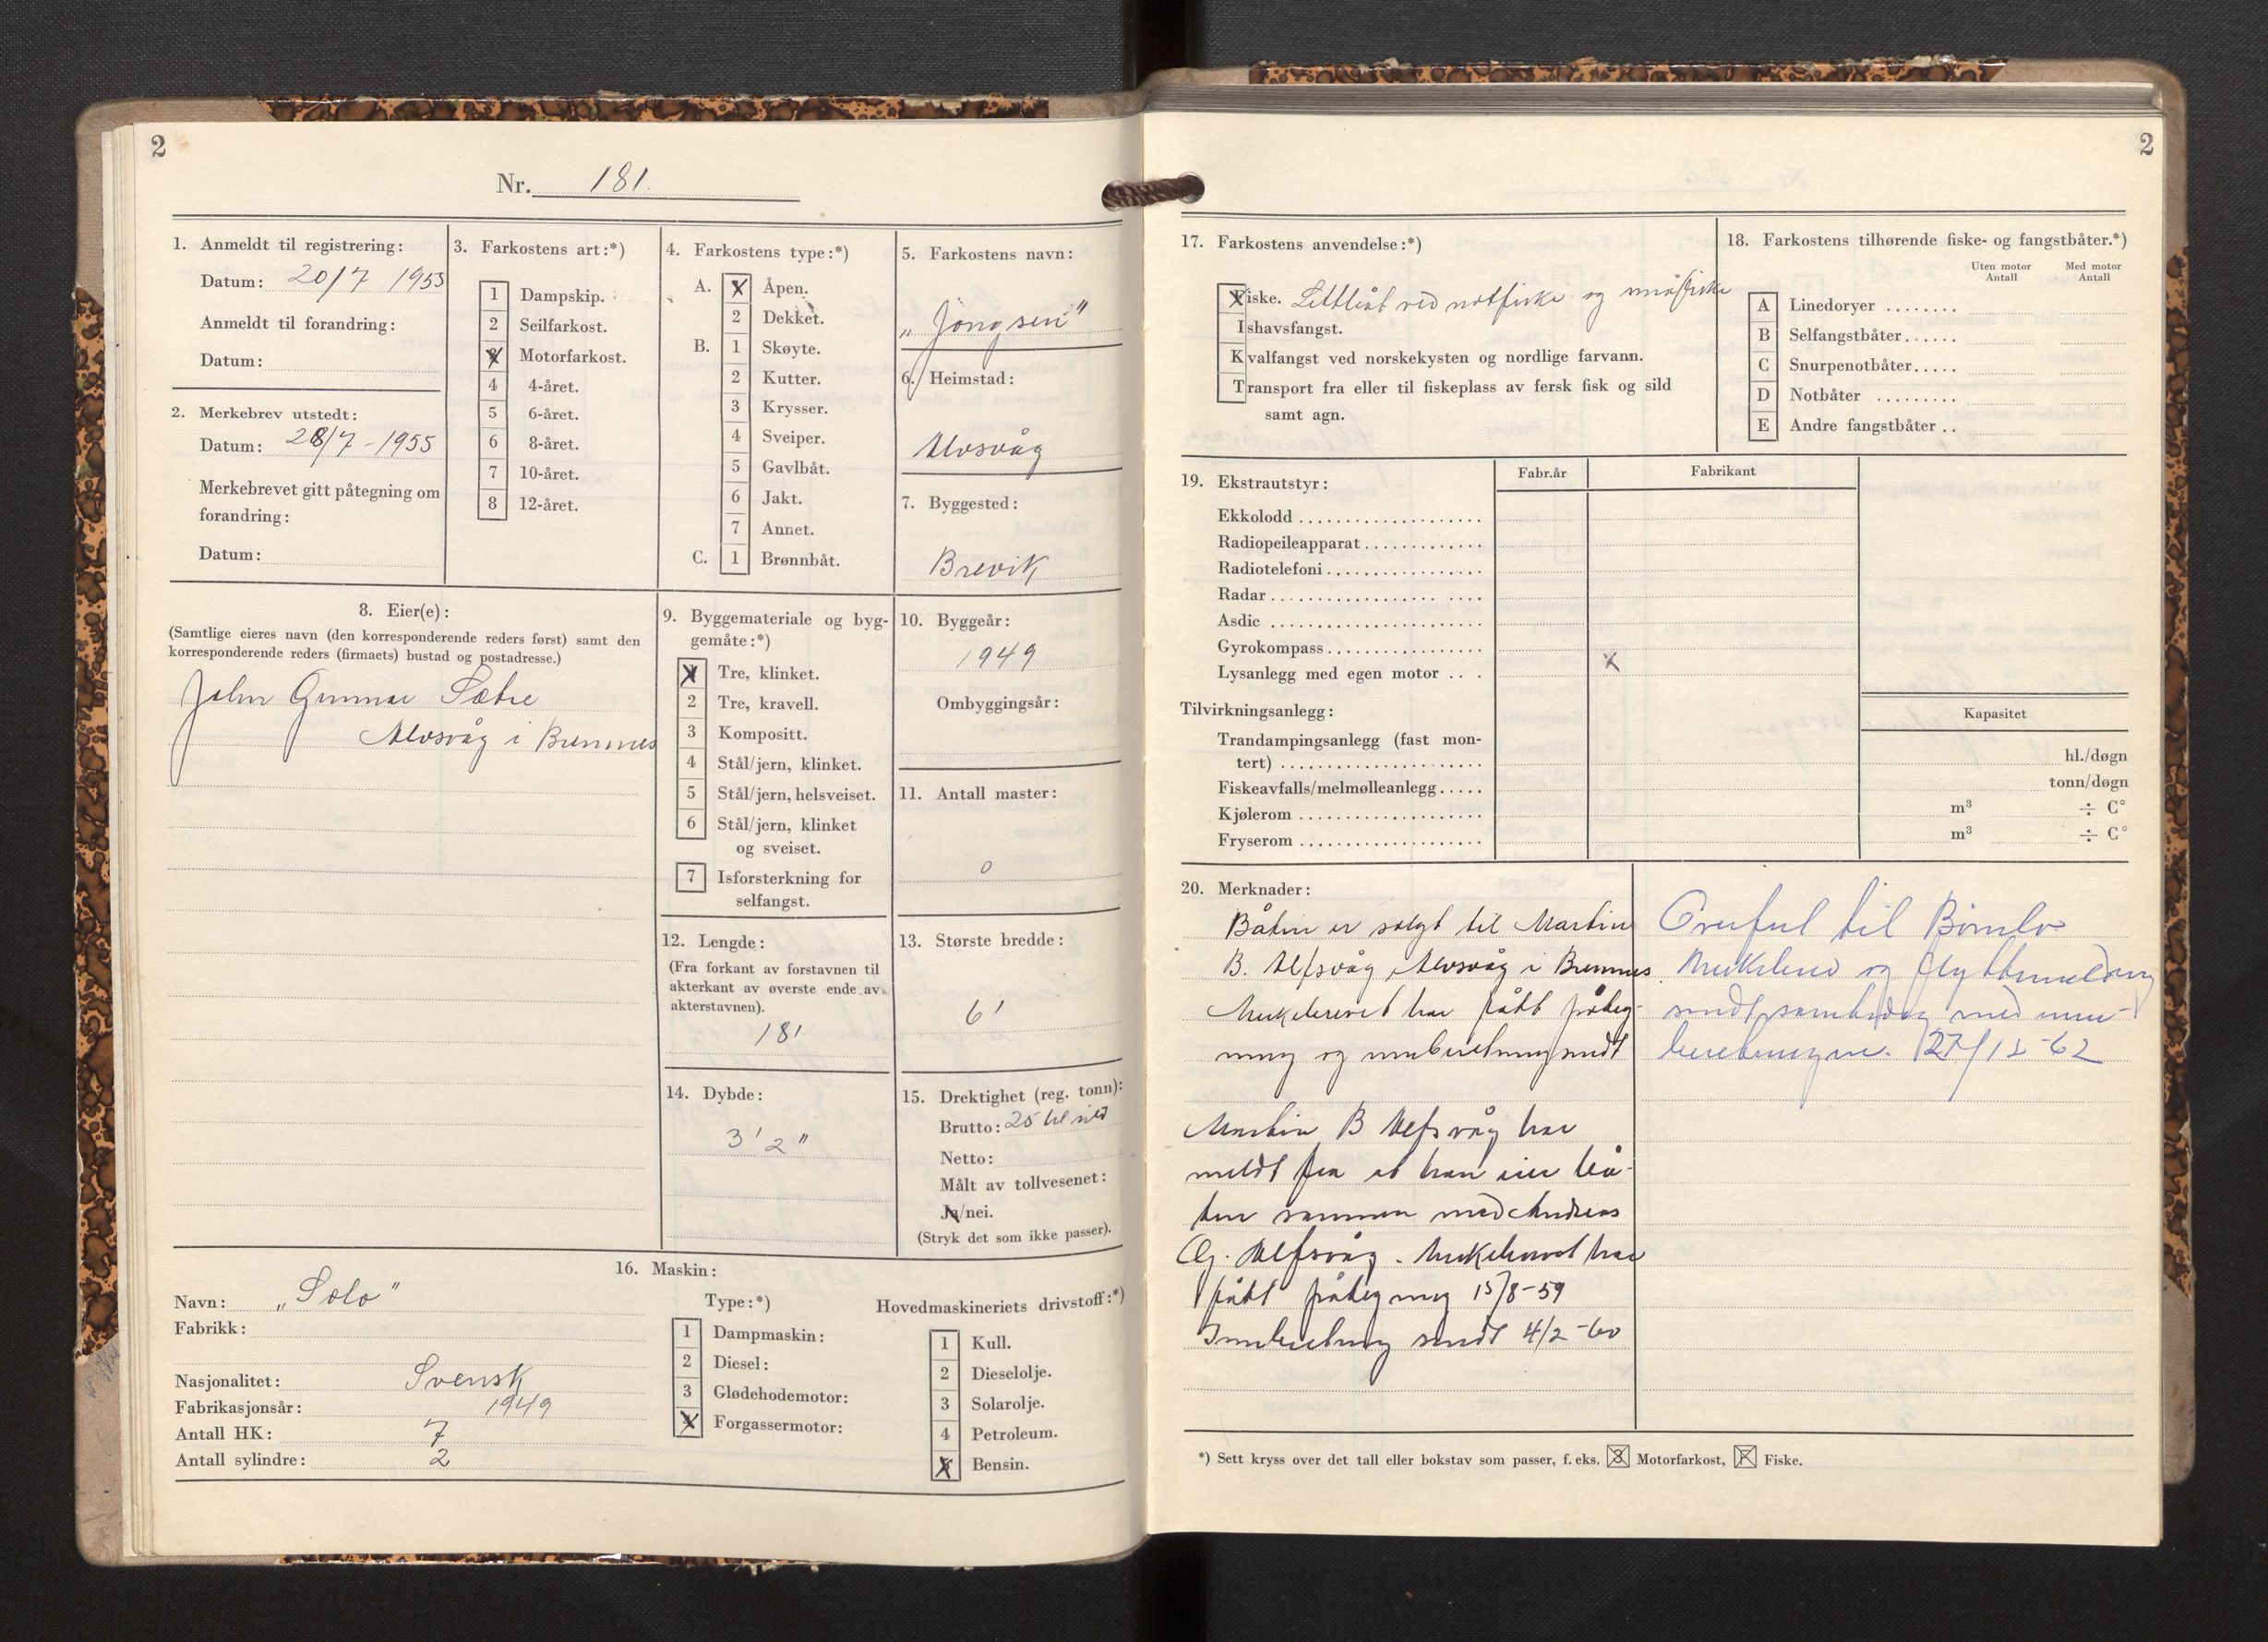 2
Nr. 181.
1. Anmeldt til registrering:
Datum: 20/7 1953
Anmeldt til forandring:
Datum:
2. Merkebrev utstedt:
Datum: 28/7-1955
Merkebrevet gitt påtegning om
forandring:
Datum:
3. Farkostens art:*)
1 Dampskip.
2 Seilfarkost.
X Motorfarkost.
4 4-året.
5 6-året.
6 8-året.
7 10-året.
8 12-året.
4. Farkostens type:*)
A. X Åpen.
2 Dekket.
B. 1 Skøyte.
2 Kutter.
3 Krysser.
4 Sveiper.
5 Gavlbåt.
6 Jakt.
7 Annet.
C. 1 Brønnbåt.
5. Farkostens navn:
„Jongsen"
6. Heimstad:
Alvsvåg
7. Byggested:
Brevik
8. Eier(e):
(Samtlige eieres navn (den korresponderende reders først) samt den
korresponderende reders (firmaets) bustad og postadresse.)
John Gunnar Sætre
Alvsvåg i Bremnes
9. Byggemateriale og byg-
gemåte:*)
X Tre, klinket.
2 Tre, kravell.
3 Kompositt.
4 Stål/jern, klinket.
5 Stål/jern, helsveiset.
6 Stål/jern, klinket
og sveiset.
7 Isforsterkning for
selfangst.
10. Byggeår:
1949
Ombyggingsår:
11. Antall master:
0
12. Lengde:
(Fra forkant av forstavnen til
akterkant av øverste ende av
akterstavnen).
18'
13. Største bredde:
6'
14. Dybde:
3'2"
15. Drektighet (reg. tonn):
Brutto: 25 hl sild
Netto:
Målt av tollvesenet:
Ja/nei.
(Stryk det som ikke passer).
16. Maskin:
Navn: „Solo"
Fabrikk:
Nasjonalitet: Svensk
Fabrikasjonsår: 1949
Antall HK: 7
Antall sylindre: 2
Type:*)
1 Dampmaskin:
2 Diesel:
3 Glødehodemotor:
X Forgassermotor:
Hovedmaskineriets drivstoff:*)
1 Kull.
2 Dieselolje.
3 Solarolje.
4 Petroleum.
X Bensin.
2
17. Farkostens anvendelse:*)
Fiske. Lettbåt ved notfiske og småfiske
Ishavsfangst.
Kvalfangst ved norskekysten og nordlige farvann.
Transport fra eller til fiskeplass av fersk fisk og sild
samt agn.
18. Farkostens tilhørende fiske- og fangstbåter.*)
Uten motor Antall
Med motor Antall
A Linedoryer ........
B Selfangstbåter......
C Snurpenotbåter.....
D Notbåter .........
E Andre fangstbåter ..
19. Ekstrautstyr:
Fabr.år Fabrikant
Ekkolodd
Radiopeileapparat
Radiotelefoni
Radar
Asdic
Gyrokompass
Lysanlegg med egen motor ... X
Tilvirkningsanlegg:
Kapasitet
Trandampingsanlegg (fast mon-
tert) hl./døgn
Fiskeavfalls/melmølleanlegg..... tonn/døgn
Kjølerom m³ ÷ C°
Fryserom m³ ÷ C°
20. Merknader:
Båten er solgt til Martin
B. Alfsvåg, Alvsvåg i Bremnes.
Merkebrevet har fått påteg-
ning og innberetning sendt
Martin B Alfsvåg har
meldt fra at han eier bå-
ten sammen med Andreas
Og. Alfsvåg. Merkebrevet har
fått påtegning 15/8-59
Innberetning sendt 4/2-60
Overført til Bømlo
Merkebrev og flyttemelding
sendt samtidig med inn-
beretningen. 27/12-62
*) Sett kryss over det tall eller bokstav som passer, f. eks. 3 Motorfarkost, F Fiske.